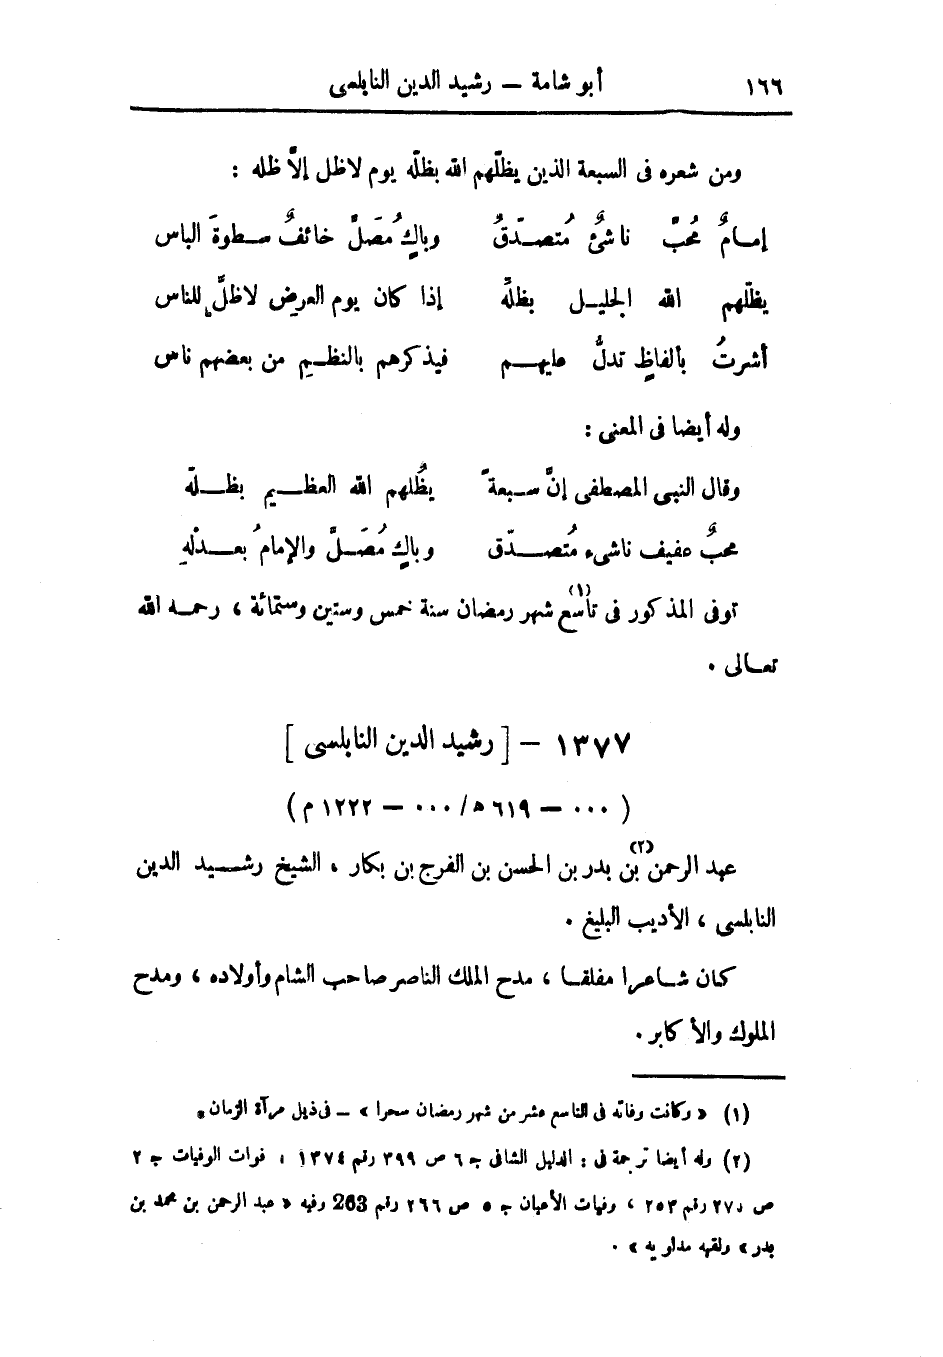 ١٦٦ أبو شامة – رشيد الدين النابلسى
ومن شعره فى السبعة الذين يظلّهم الله بظلّه يوم لاظل إلاَّ ظله :
إمـامٌ مُحبّ ناشئٌ مُتصـدّقٌ وباكٍ مُصَلَّ خائفٌ سـطوةَ الباس
يظلّهم الله الجليـل بظلِّه إذا كان يوم العرضِ لاظلَّ للناس
أشرتُ بألفاظٍ تدلُّ عليهـم فيذكرهم بالنظـمِ من بعضهم ناس
وله أيضا فى المعنى :
وقال النبى المصطفى إنَّ سـبعةً يظُلهم الله العظـيم بظـلّه
محبٌ عفيف ناشىء مُتصـدّق وباكٍ مُصَـلَّ والإمامُ بعـدْلهِ
توفى المذكور فى تاسع(١) شهر رمضان سنة خمس وستين وستمائة ، رحمـه الله
تعـالى .
١٣٧٧ – [ رشيد الدين النابلسى ]
( ٠٠٠ – ٦١٩ هـ/ ٠٠٠ – ١٢٢٢ م )
عبد الرحمن(٢) بن بدر بن الحسن بن الفرج بن بكار ، الشيخ رشـيد الدين
النابلسى ، الأديب البليغ .
كان شـاعرا مفلقـا ، مدح الملك الناصر صاحب الشام وأولاده ، ومدح
الملوك والأكابر .
(١) « وكانت وفاته فى التاسع عشر من شهر رمضان سحرا » – فى ذيل مرآة الزمان .
(٢) وله أيضا ترجمة فى : الدليل الشافى جـ ٦ ص ٣٩٩ رقم ١٣٧٤ ، فوات الوفيات جـ ٢
ص ٢٧٥ رقم ٢٥٣ ، وفيات الأعيان جـ ٥ ص ٢٦٦ رقم 263 وفيه « عبد الرحمن بن محمد بن
بدر » ولقبه مدلويه » .